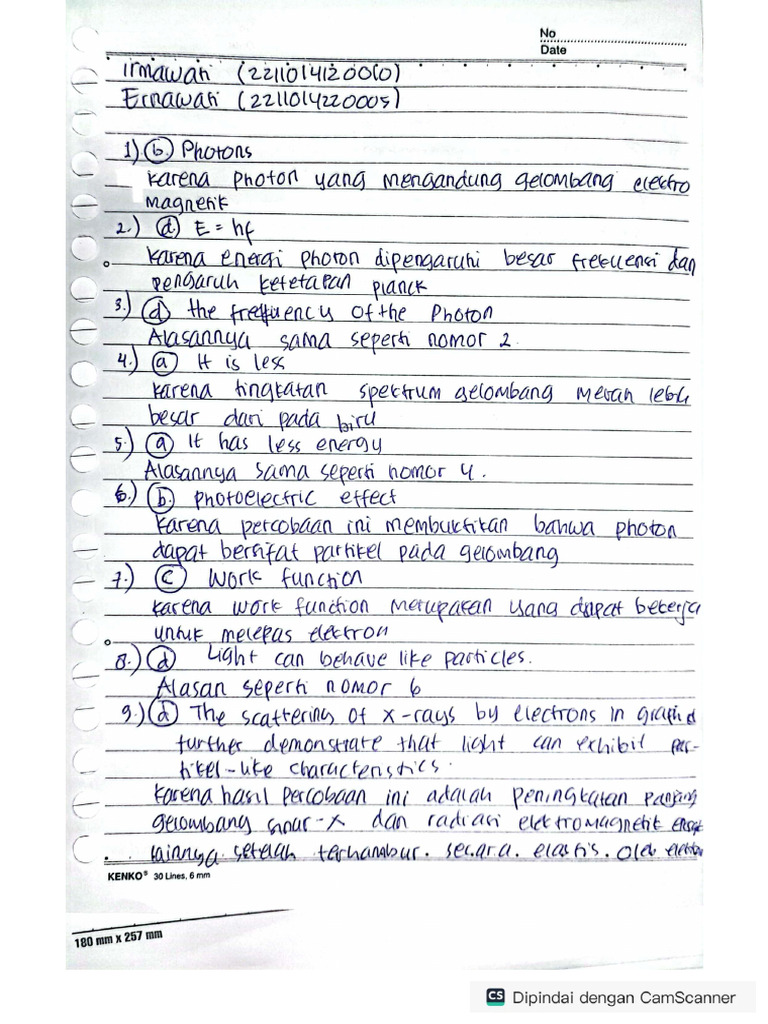 No
Date
Irmawati (2211014120010)
Ernawati (2211014220005)
1) (b.) Photons
karena photon yang mengandung gelombang elektro
magnetik
2.) (d) E = hf
karena energi photon dipengaruhi besar frekuensi dan
pengaruh ketetapan planck
3.) (d) the frequency of the Photon
Alasannya sama seperti nomor 2.
4.) (a) It is less
karena tingkatan spektrum gelombang merah lebih
besar dari pada biru
5.) (a) It has less energy
Alasannya sama seperti nomor 4.
6.) (b.) photoelectric effect
karena percobaan ini membuktikan bahwa photon
dapat bersifat partikel pada gelombang
7.) (c) Work function
karena work function merupakan yang dapat bekerja
untuk melepas elektron
8.) (d) Light can behave like particles.
Alasan seperti nomor 6
9.) (d) The scattering of x-rays by electrons in
further demonstrate that light can exhibit par-
tikel-like characteristics.
karena hasil percobaan ini adalah peningkatan panjang
gelombang sinar-x dan radiasi elektromagnetik
lainnya setelah terhambur. secara. elastis. oleh elektron
KENKO® 30 Lines, 6 mm
180 mm x 257 mm
CS Dipindai dengan CamScanner